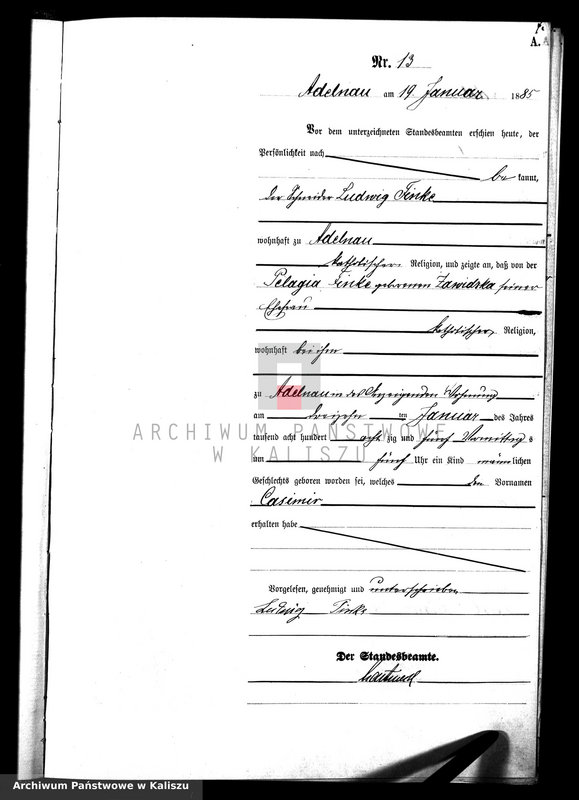 A.
Nr. 13
Adelnau am 19. Januar 1885
Vor dem unterzeichneten Standesbeamten erschien heute, der
Persönlichkeit nach be kannt,
der Schneider Ludwig Finke
wohnhaft zu Adelnau
katholischer Religion, und zeigte an, daß von der
Pelagia Finke geborenen Zawidzka seiner
Ehefrau
katholischer Religion,
wohnhaft bei ihm
zu Adelnau in des Anzeigenden Wohnung
am dreizehn ten Januar des Jahres
tausend acht hundert acht zig und fünf Vormittag s
um fünf Uhr ein Kind männlichen
Geschlechts geboren worden sei, welches den Vornamen
Casimir
erhalten habe
Vorgelesen, genehmigt und unterschrieben
Ludwig Finke
Der Standesbeamte.
ARCHIWUM PAŃSTWOWE
W KALISZU
Archiwum Państwowe w Kaliszu